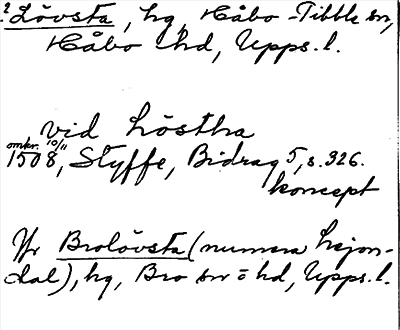 ? Lövsta, hg, Håbo-Tibble sn,
Håbo hd, Upps. l.
vid Löstha
omkr. 10/11
1508, Styffe, Bidrag 5, s. 326.
koncept
Jfr Brolövsta (numera Lejon-
dal), hg, Bro sn o hd, Upps. l.